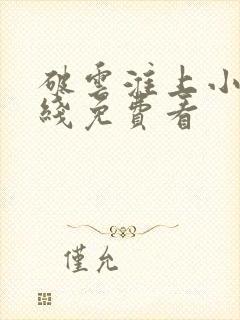 破雲淮上小
綫免費看
僅允